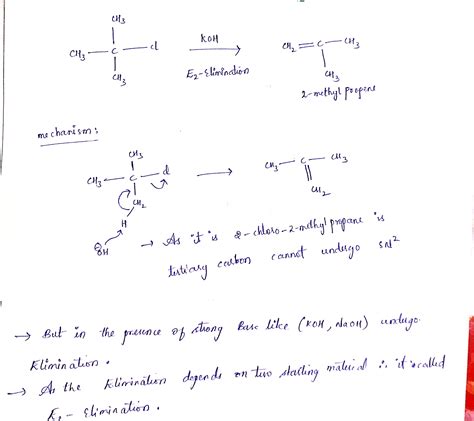 CH3
CH3 — C — Cl
CH3
KOH
E2-Elimination
CH2 = C — CH3
CH3
2-methyl propene
mechanism:
CH3
CH3 — C — Cl
CH2
H
OH
CH3 — C — CH3
CH2
→ As it is 2-chloro-2-methyl propane is
tertiary carbon cannot undergo SN2
→ But in the presence of strong Base like (KOH, NaOH) undergo
Elimination.
→ As the Elimination depends on two starting material ∴ it is called
E2 - Elimination.